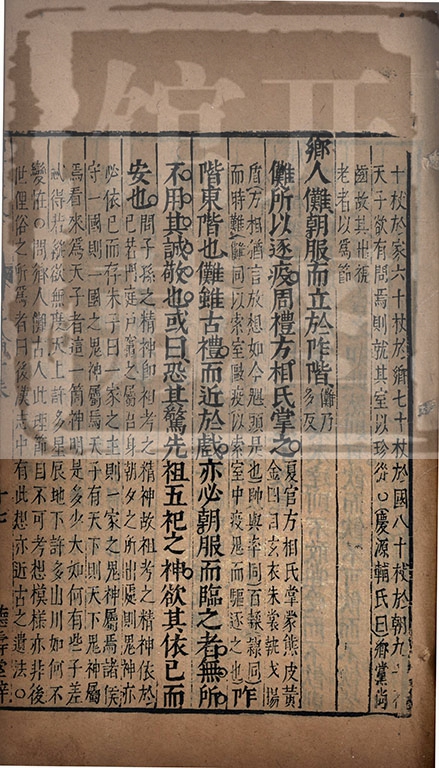 十杖於家六十杖於鄉七十杖於國八十杖於朝九十者
天子欲有問焉則就其室以珍從○慶源輔氏曰鄉黨尚
齒故其出視
老者以爲節
鄉人儺朝服而立於阼階儺乃多反
儺所以逐疫周禮方相氏掌之夏官方相氏掌蒙熊皮黃金四目玄衣朱裳執戈揚
盾方相猶言放想如今魌頭是也帥與率同百隸隸同而時難儺同以索室毆疫以索室中疫鬼而驅逐之也阼
階東階也儺雖古禮而近於戲亦必朝服而臨之者無所
不用其誠敬也或曰恐其驚先祖五祀之神欲其依己而
安也問子孫之精神即祖考之精神故祖考之精神依於
己若門庭戶竈之屬吾身朝夕之所出處則鬼神亦
必依己而存朱子曰一家之主則一家之鬼神屬焉諸侯
守一國則一國之鬼神屬焉天子有天下則天下鬼神屬
焉看來爲天子者這一箇神明是多少大如何有些子差
忒得若縱欲無度天上許多星辰地下許多山川如何不
變在○問鄉人儺古人此理節目不可考想模樣亦非後
世俚俗之所爲者曰後漢志中有此想亦近古之遺法○